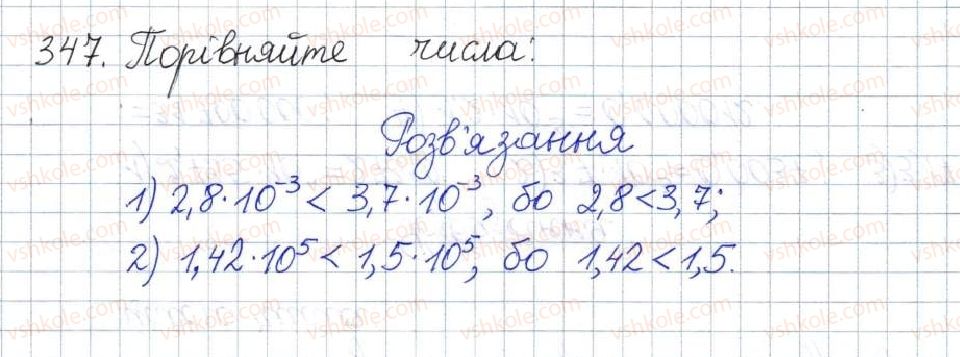 347. Порівняйте числа:
Розв'язання
1) 2,8·10⁻³ < 3,7·10⁻³, бо 2,8<3,7;
2) 1,42·10⁵ < 1,5·10⁵, бо 1,42<1,5.